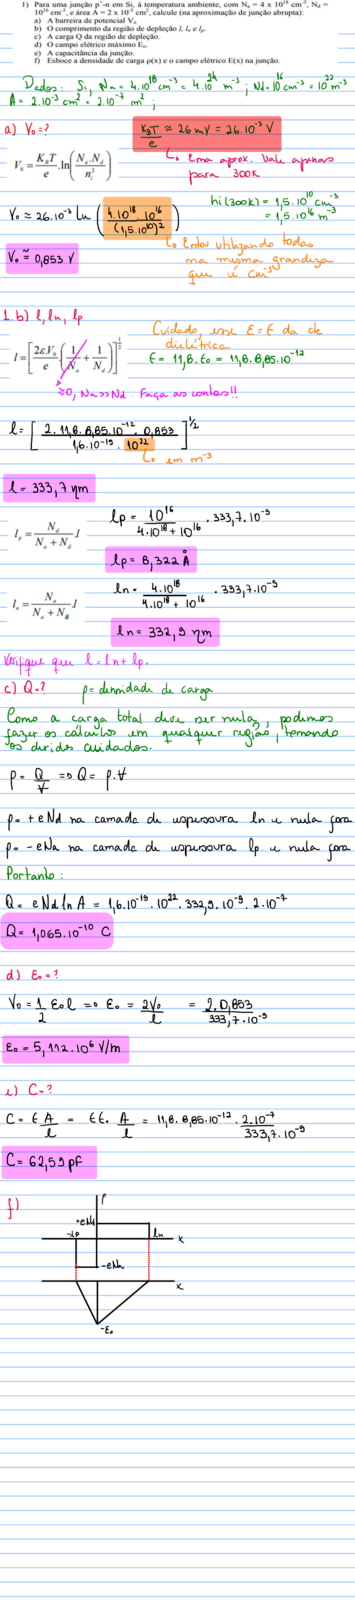 1) Para uma junção p⁺-n em Si, à temperatura ambiente, com Nₐ = 4 x 10¹⁸ cm⁻³, N_d =
10¹⁶ cm⁻³, e área A = 2 x 10⁻³ cm², calcule (na aproximação de junção abrupta):
a) A barreira de potencial Vₒ
b) O comprimento da região de depleção l, lₙ e lₚ.
c) A carga Q da região de depleção.
d) O campo elétrico máximo Eₒ.
e) A capacitância da junção.
f) Esboce a densidade de carga ρ(x) e o campo elétrico E(x) na junção.
Dados: Si, Na = 4.10¹⁸ cm⁻³ = 4.10²⁴ m⁻³; Nd = 10¹⁶ cm⁻³ = 10²² m⁻³
A = 2.10⁻³ cm² = 2.10⁻⁷ m²;
a) Vo = ?
KBT/e ≈ 26 mV = 26.10⁻³ V
Uma aprox. Vale apenas
para 300K
V₀ = K_BT/e . ln(Nₐ.N_d / nᵢ²)
ni(300K) = 1,5.10¹⁰ cm⁻³
= 1,5.10¹⁶ m⁻³
Vo ≈ 26.10⁻³ ln (4.10¹⁸. 10¹⁶ / (1,5.10¹⁰)²)
Entou utilizando todas
na mesma grandeza
que é cm⁻³
Vo ≈ 0,853 V
1.b) l, ln, lp
Cuidado, esse ε = ε da cte
dielétrica
l = [2ε.V₀/e . (1/Nₐ + 1/N_d)]^1/2
ε = 11,8. εo = 11,8. 8,85.10⁻¹²
≈0, Na>>Nd. Faça as contas!!
l = [2. 11,8. 8,85.10⁻¹². 0,853 / 1,6.10⁻¹⁹. 10²²]^1/2
em m⁻³
l = 333,7 ηm
lₚ = N_d / Nₐ + N_d l
lp = 10¹⁶ / 4.10¹⁸ + 10¹⁶ . 333,7.10⁻⁹
lp = 8,322 Å
lₙ = Nₐ / Nₐ + N_d l
ln = 4.10¹⁸ / 4.10¹⁸ + 10¹⁶ . 333,7.10⁻⁹
ln = 332,9 ηm
Verifique que l = ln + lp.
c) Q = ?
ρ = densidade de carga
Como a carga total deve ser nula, podemos
fazer os cálculos em qualquer região, tomando
os devidos cuidados.
ρ = Q/V => Q = ρ.V
ρ = +eNd na camada de espessura ln e nula fora
ρ = -eNa na camada de espessura lp e nula fora
Portanto:
Q = eNd ln A = 1,6.10⁻¹⁹. 10²². 332,9. 10⁻⁹. 2.10⁻⁷
Q = 1,065.10⁻¹⁰ C
d) Eo = ?
Vo = 1/2 Eo l => Eo = 2Vo/l = 2.0,853 / 333,7.10⁻⁹
Eo = 5,112.10⁶ V/m
e) C = ?
C = ε A/l = εεo A/l = 11,8. 8,85.10⁻¹². 2.10⁻⁷ / 333,7.10⁻⁹
C = 62,59 pF
f)
ρ
+eNd
-lp
ln
x
-eNa
x
-Eo